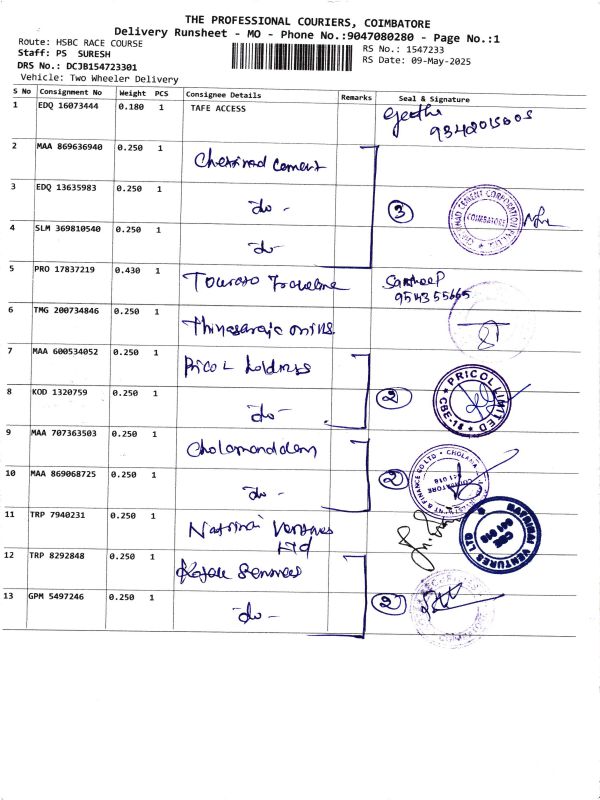 THE PROFESSIONAL COURIERS, COIMBATORE
Delivery Runsheet - MO - Phone No.:9047080280 - Page No.:1
Route: HSBC RACE COURSE
Staff: PS SURESH
DRS No.: DCJB154723301
Vehicle: Two Wheeler Delivery
RS No.: 1547233
RS Date: 09-May-2025
S No Consignment No Weight PCS Consignee Details Remarks Seal & Signature
1 EDQ 16073444 0.180 1 TAFE ACCESS Geetha
2 MAA 869636940 0.250 1 Chettinad Cement
3 EDQ 13635983 0.250 1 do - 3
COIMBATORE
4 SLM 369810540 0.250 1 do -
5 PRO 17837219 0.430 1 Sandeep
6 TMG 200734846 0.250 1
7 MAA 600534052 0.250 1 Pricol
8 KOD 1320759 0.250 1 do - 2
PRICOL LIMITED
CBE-18
9 MAA 707363503 0.250 1 Cholamandalam
10 MAA 869068725 0.250 1 do - 2
11 TRP 7940231 0.250 1 Ventures
Ltd
NAFRINAI VENTURES LTD
CBE
641 018
12 TRP 8292848 0.250 1
13 GPM 5497246 0.250 1 do - 2